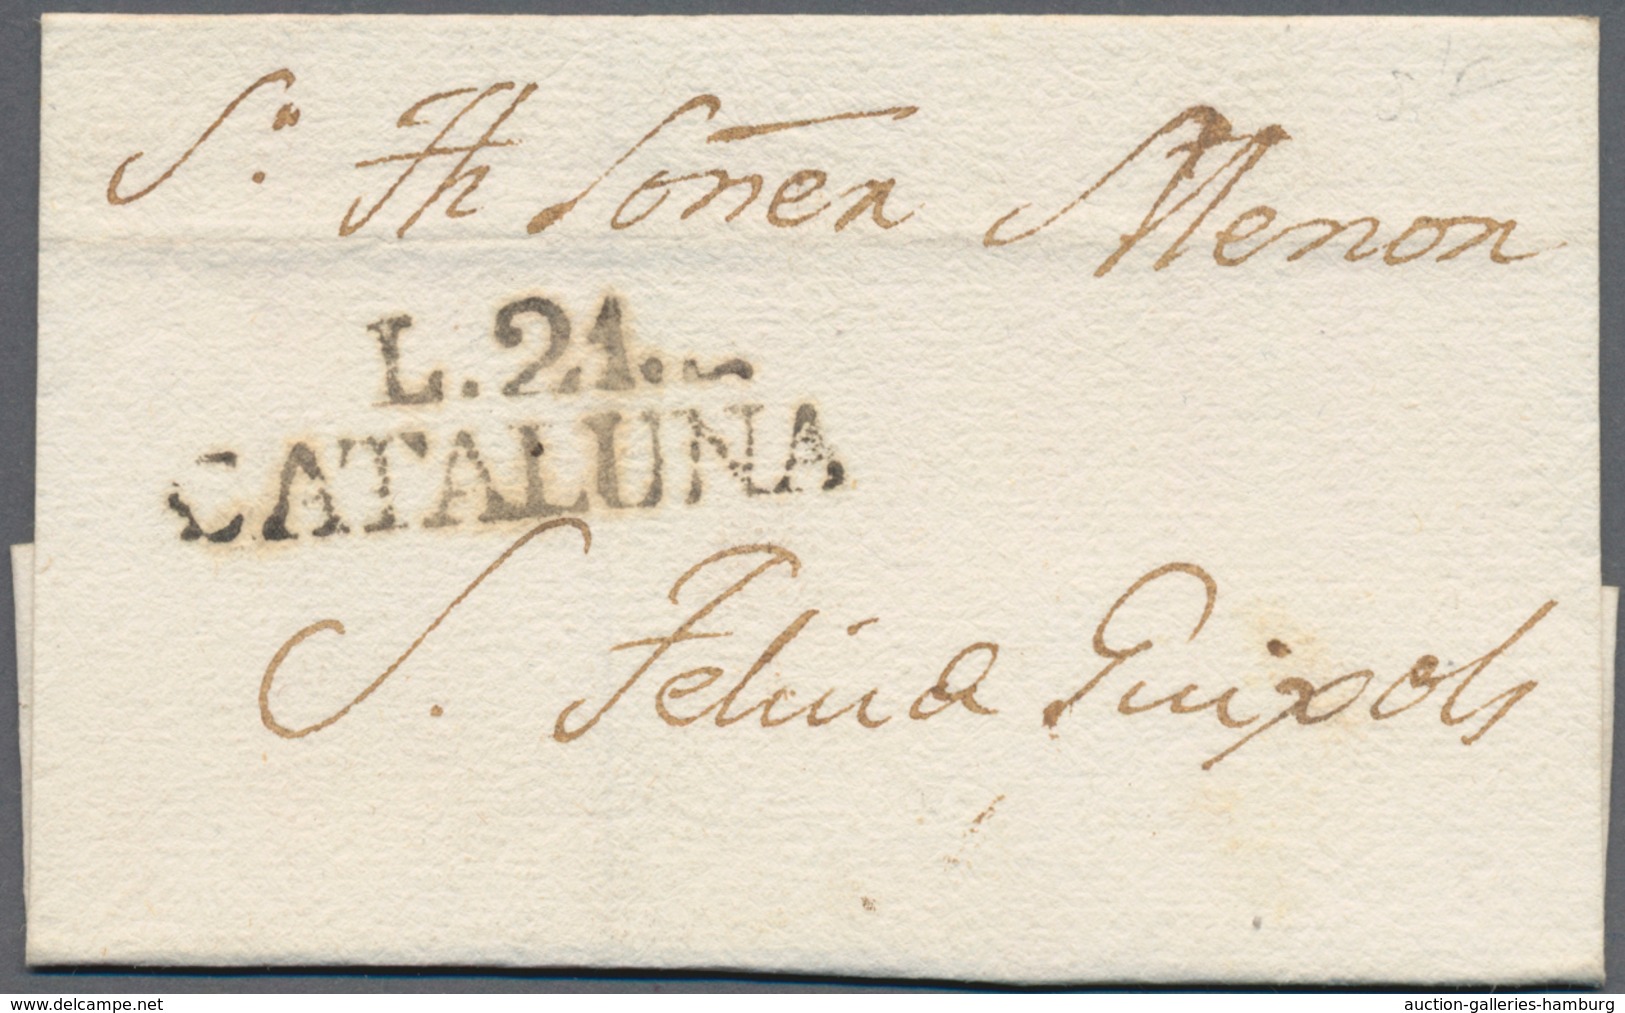 S.r Th Soñer Menor
L.21.
CATALUÑA
S. Feliu a Guixols
delcampe.net
auction-galleries-hamburg